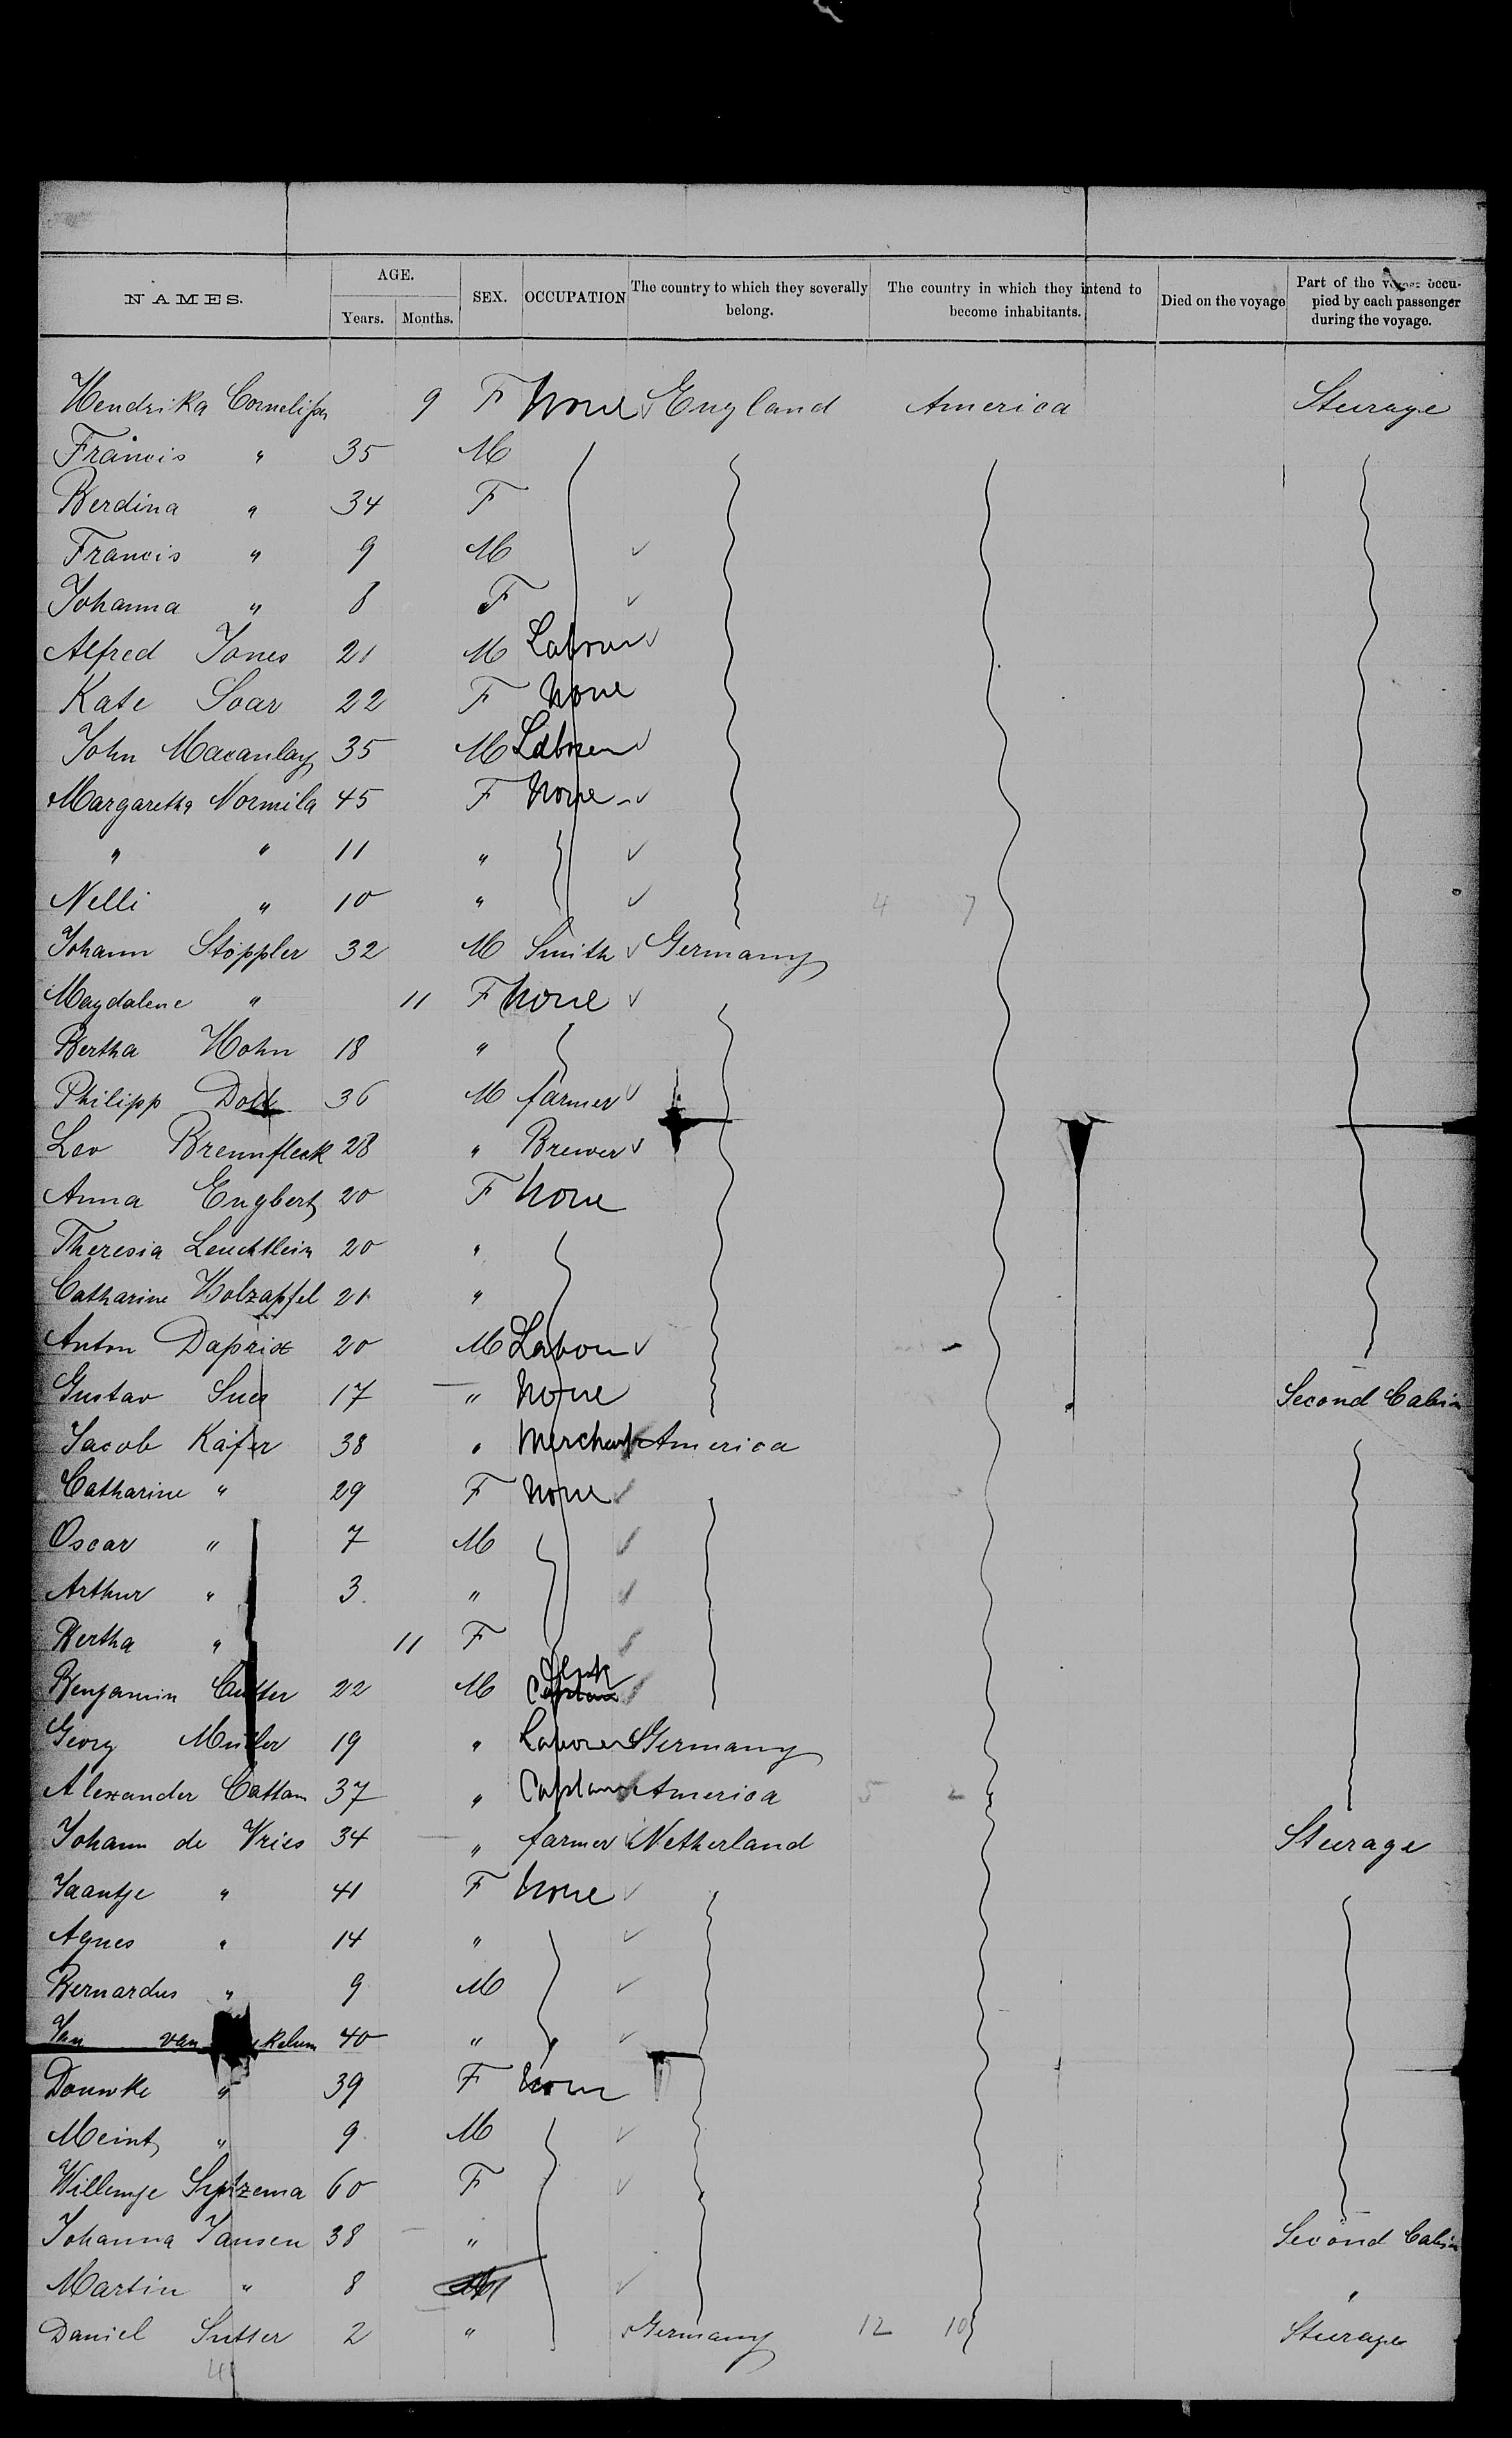 NAMES. AGE. Years. Months. SEX. OCCUPATION The country to which they severally belong. The country in which they intend to become inhabitants. Died on the voyage Part of the occupied by each passenger during the voyage.
Hendrika Cornelißen 9 F None England America Steerage
Francis " 35 M
Berdina " 34 F
Francis " 9 M
Johanna " 8 F
Alfred Jones 21 M Labourer
Kate Soar 22 F None
John Macanlay 35 M Laborer
Margaretha Normila 45 F None
" " 11 "
Nelli " 10 " 4 7
Johann Stöppler 32 M Smith Germany
Magdalene " 11 F None
Bertha Hohn 18 "
Philipp Doll 36 M farmer
Leo Brennfleck 28 " Brewer
Anna Engbert 20 F None
Theresia Leuchtlein 20 "
Catharine Holzapfel 21 "
Anton Daprix 20 M Labour
Gustav 17 " None Second Cabin
Jacob Käfer 38 " Merchant America
Catharine " 29 F None
Oscar " 7 M
Arthur " 3 "
Bertha " 11 F
Benjamin Cutter 22 M Clerk
Georg Müller 19 " Laborer Germany
Alexander Cattam 37 " Captain America 5 2
Johann de Vries 34 " farmer Netherland Steerage
Jaantje " 41 F None
Agnes " 14 "
Bernardus " 9 M
Jan van 40 "
Douwke " 39 F None
Meint " 9 M
Willemje Sytzema 60 F
Johanna Jansen 38 " Second Cabin
Martin " 8 M "
Daniel Sutter 2 " Germany 12 10 Steerage